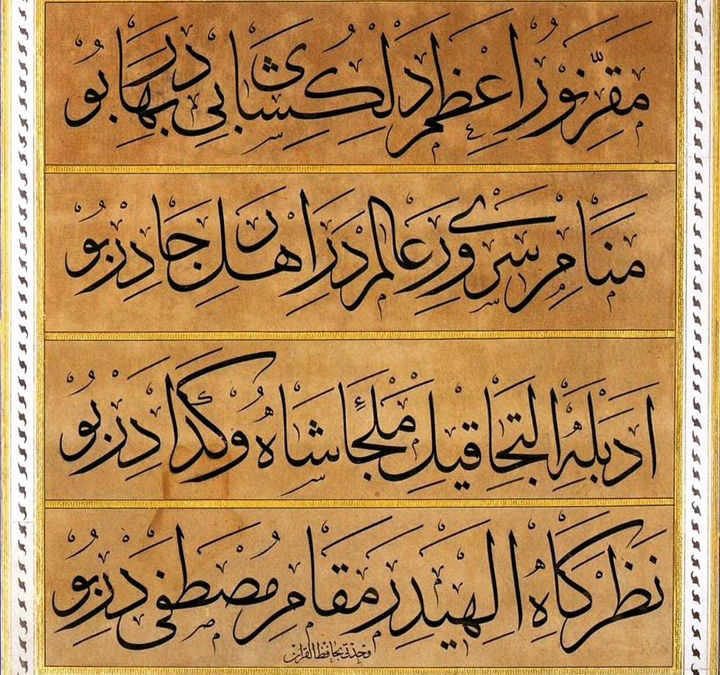 مقر نور اعظم دلكشاى بى بهادر بو
منام سرور عالم در اهل رجادر بو
ادبله التجا قيل ملجأ شاه وكدادر بو
نظركاه الهيدر مقام مصطفى در بو
وحدتى بحافظ القرآن